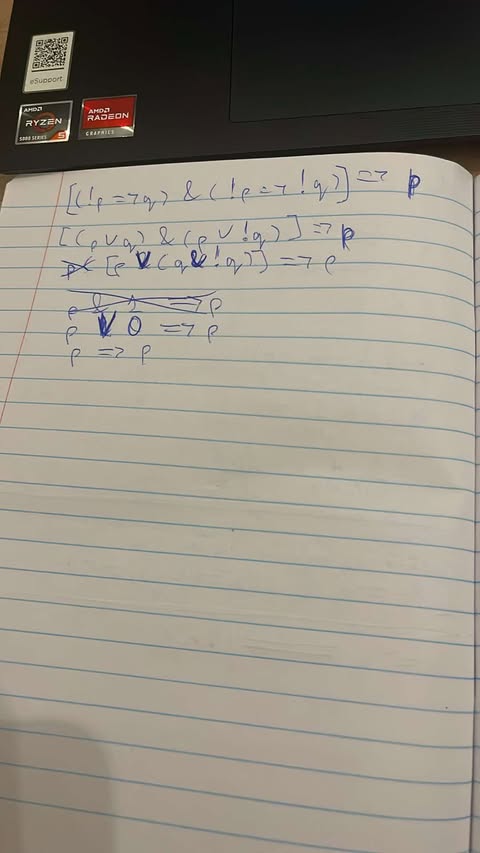 eSupport
AMD
RYZEN 5
5000 SERIES
AMD
RADEON
GRAPHICS
[(!p => q) & (!p => !q)] => p
[(p ∨ q) & (p ∨ !q)] => p
[p ∨ (q & !q)] => p
p & 1 => p
p ∨ 0 => p
p => p